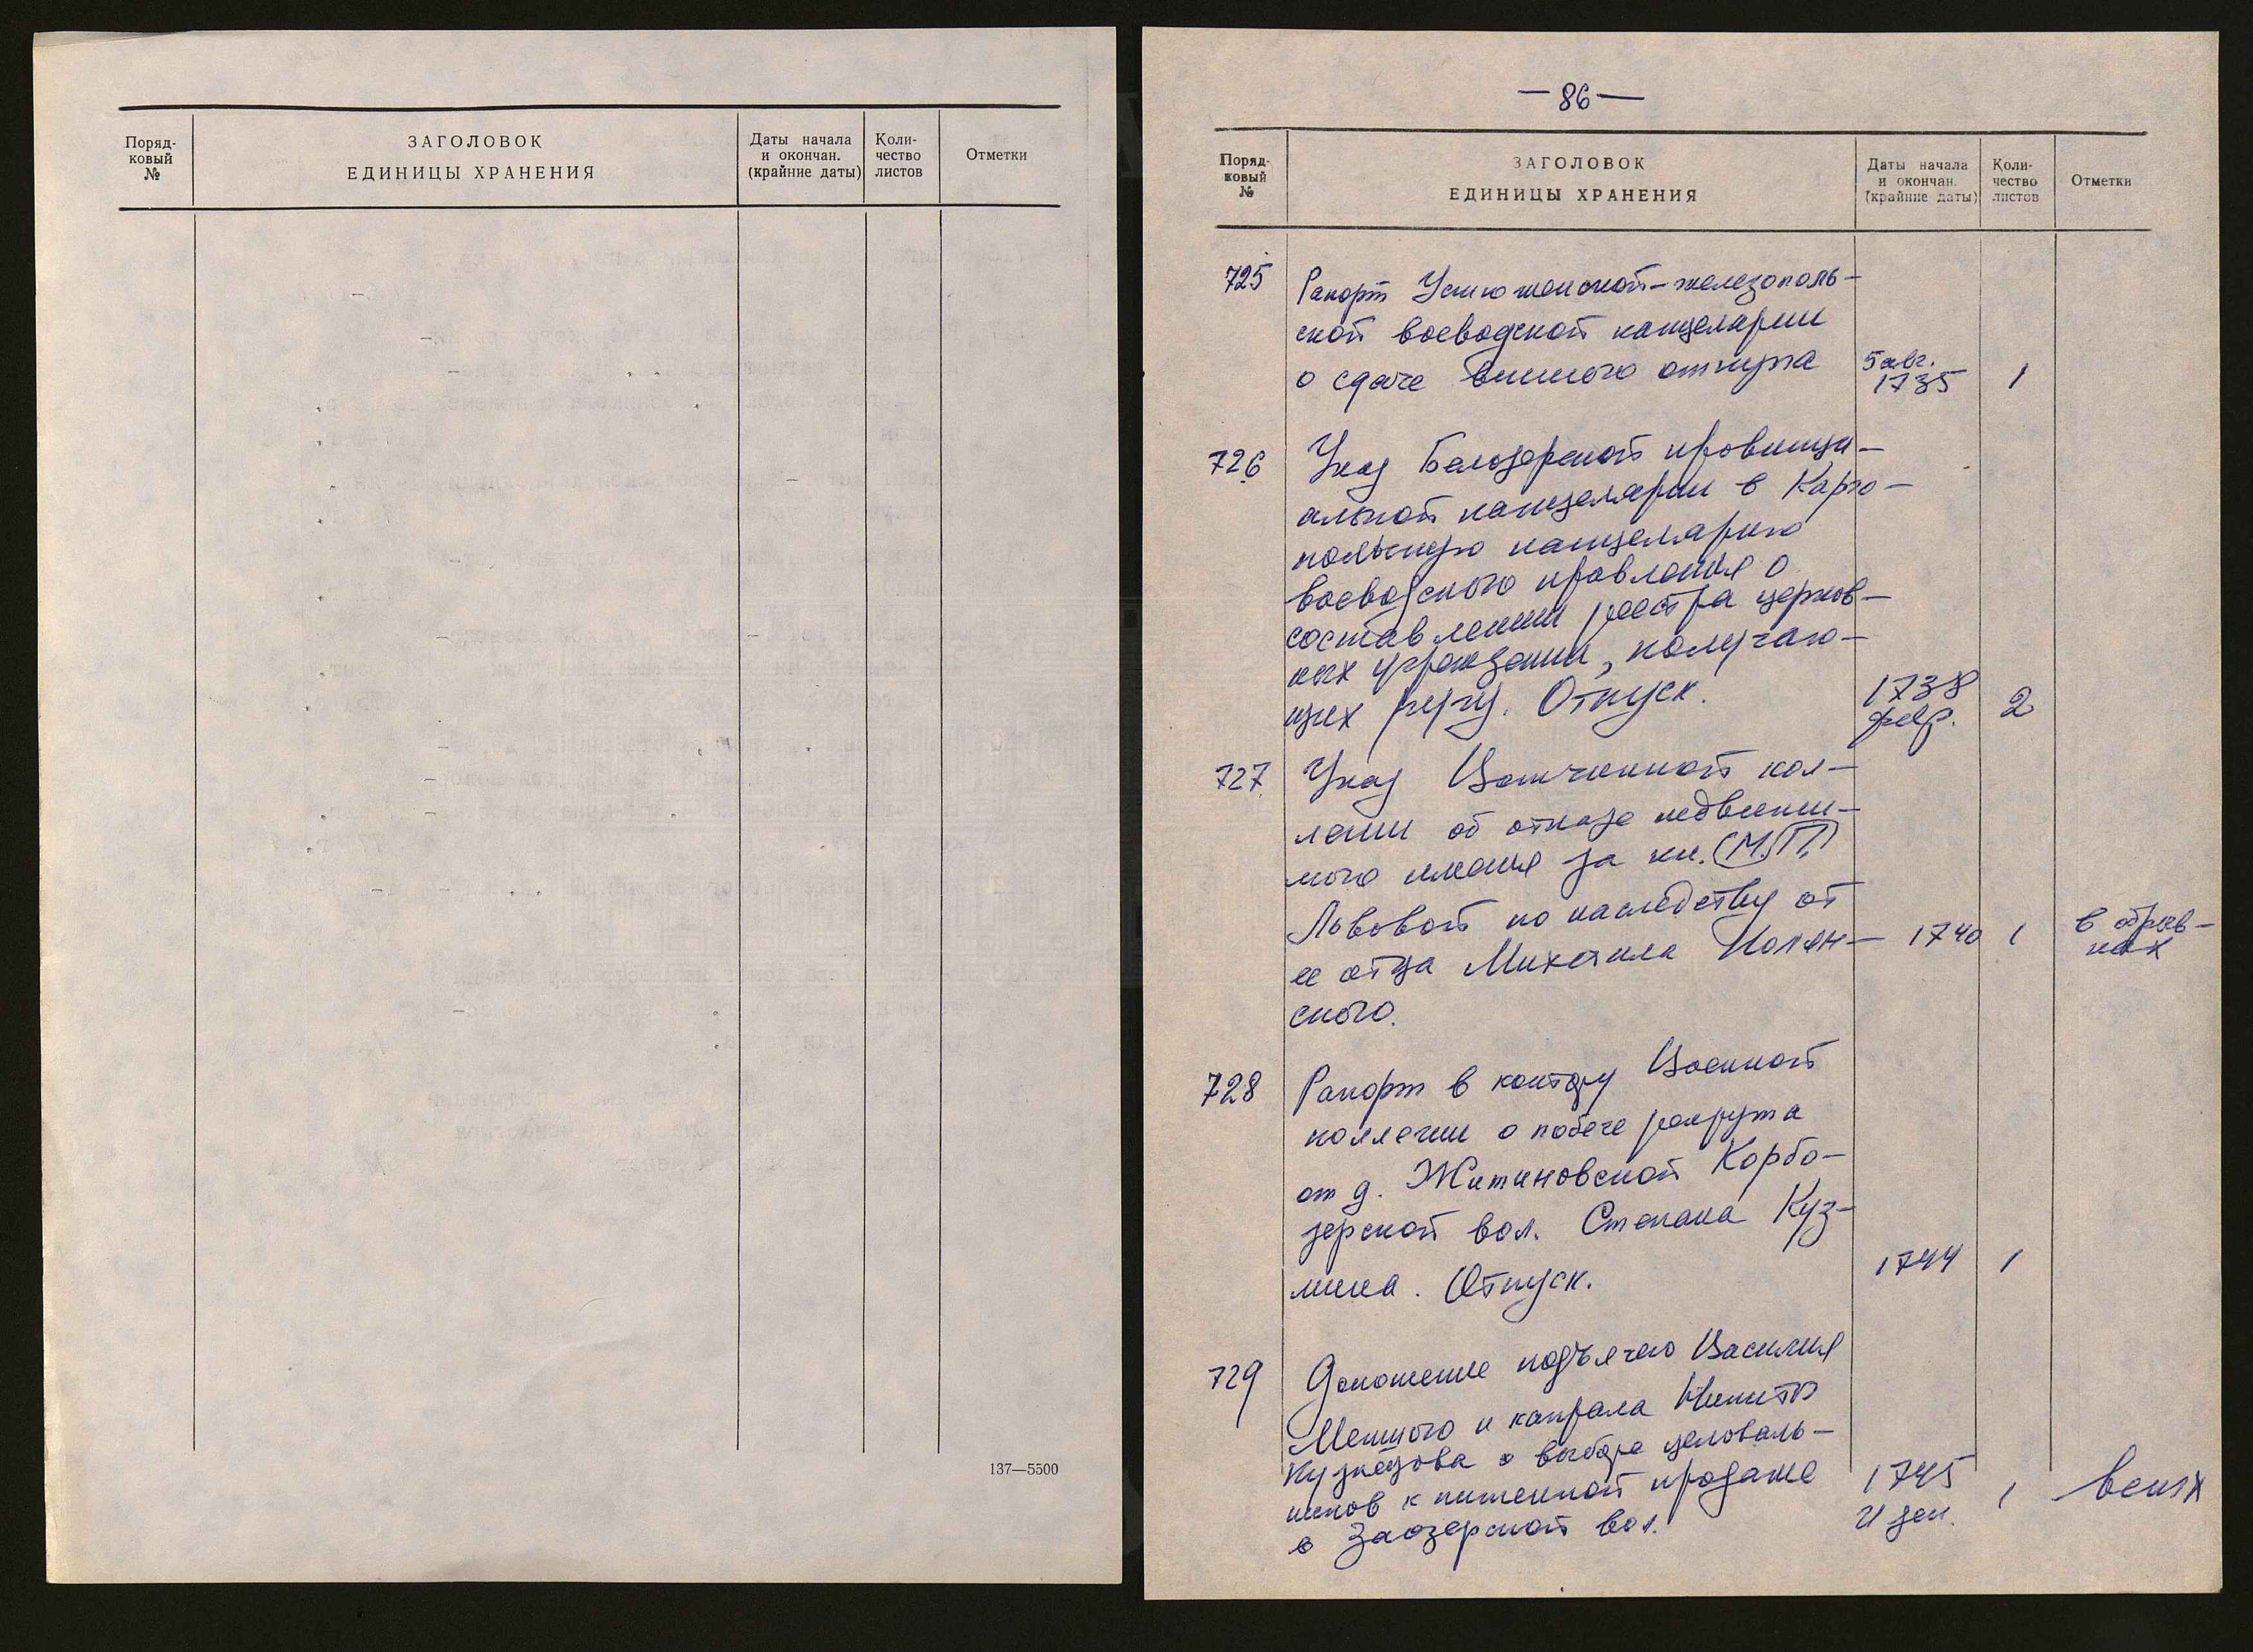 Поряд-
ковый
№
ЗАГОЛОВОК
ЕДИНИЦЫ ХРАНЕНИЯ
Даты начала
и окончан.
(крайние даты)
Коли-
чество
листов
Отметки
137—5500
— 86 —
Поряд-
ковый
№
ЗАГОЛОВОК
ЕДИНИЦЫ ХРАНЕНИЯ
Даты начала
и окончан.
(крайние даты)
Коли-
чество
листов
Отметки
725 Рапорт Устюженской-железополь-
ской воеводской канцелярии
о сдаче винного откупа 5 авг. 1735 1
726 Указ Белозерской провинци-
альной канцелярии в Карго-
польскую канцелярию
воеводского правления о
составлении реестра церков-
ных учреждений, получаю-
щих ругу. Отпуск. 1738 февр. 2
727 Указ Вотчинной кол-
легии об отказе недвижи-
мого имения за кн. (М.П.)
Львовой по наследству от
ее отца Михаила – 1740 1 в обрыв-
ского. ках
728 Рапорт в контору Военной
коллегии о побеге рекрута
от д. Житиновской Корбо-
зерской вол. Степана Куз-
мина. Отпуск. 1744 1
729 Доношение подъячего Василия
и капрала Никиты
Кузнецова о выборе целоваль-
ников к питейной продаже 1745 1 ветх
в Заозерской вол. 21 дек.